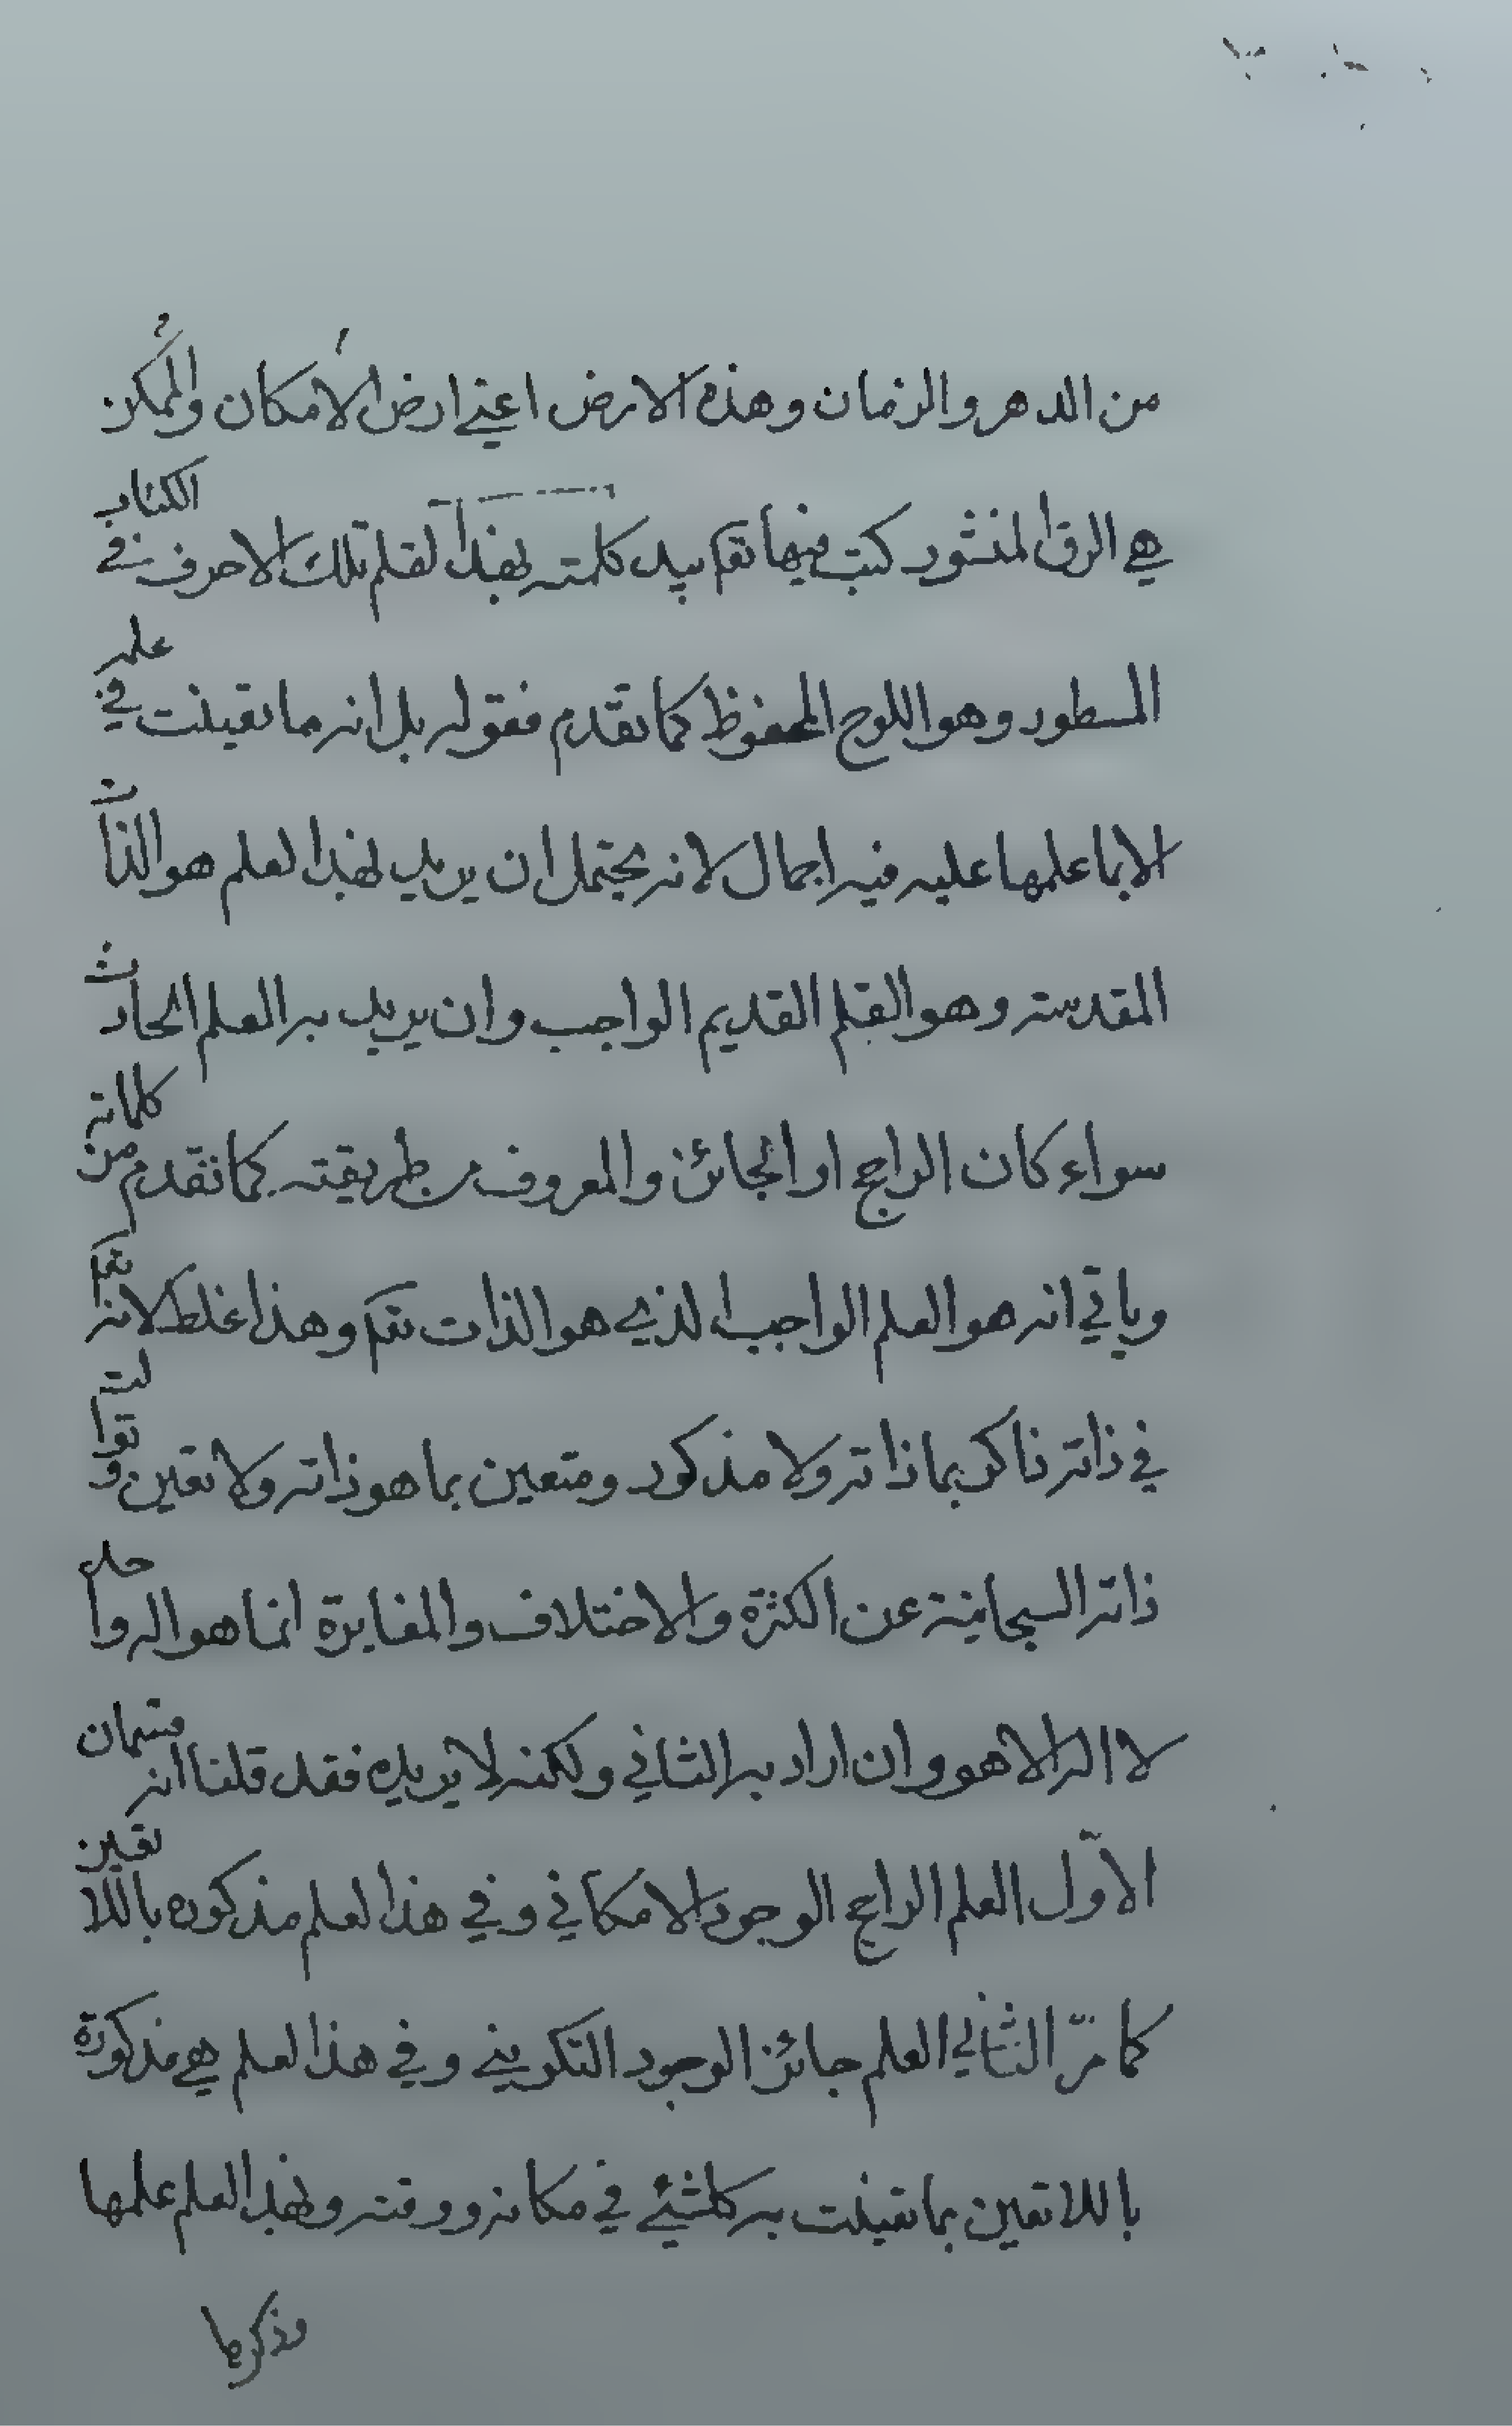 من الدهر والزمان وهذه الارض اعني ارض الأمكان والممكن
هي الرق المنشور كتب فيها تعالى بيد كلمته بهذا لقلم تلك الاحرف في الكتاب
المسطور وهو اللوح المحفوظ كما تقدم فقوله بل انه ما تعينت في علمه
الا بما علمها عليه فيه اجمال لانه يحتمل ان يريد بهذا لعلم هو الذات
المقدسة وهو العلم القديم الواجب وان يريد به العلم الحادث
سواء كان الراجح او الجائز والمعروف من طريقته كما تقدم من كلماته
وياتي انه هو العلم الواجب الذي هو الذات تعالى وهذا غلط لانه تعالى
في ذاته ذاكر بما ذاته ولا مذكور ومتعين بما هو ذاته ولا تعين و تعالت
ذاته السبحانية عن الكثرة والاختلاف والمغايرة انما هو اله واحد
لا اله الا هو وان اراد به الثاني ولكنه لا يريده فقد قلنا انه قسمان
الاوّل العلم الراجح الوجود الامكاني وفي هذا لعلم مذكوره باللا تعين
كما مرّ الثاني العلم جائز الوجود التكويني وفي هذا لعلم هي مذكورة
باللا تعين بما تعينت به كلشئ في مكانه ووقته وبهذا العلم علمها
وذكرها